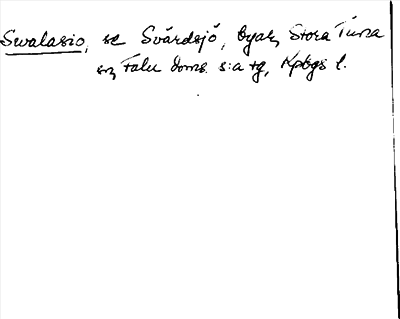 Swalasio, se Svärdsjö, byar, Stora Tuna
sn, Falu doms. s:a tg, Kpbgs l.